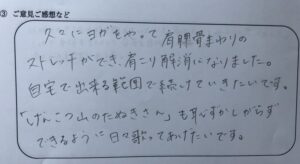 ③ ご意見ご感想など
久々にヨガをやって肩甲骨まわりの
ストレッチができ、肩こり解消になりました。
自宅で出来る範囲で続けていきたいです。
「げんこつ山のたぬきさん」も恥ずかしがらず
できるように日々歌ってあげたいです。